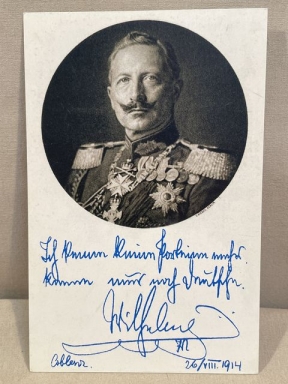 Ich kenne keine Parteien mehr.
kenne nur noch Deutsche.
Wilhelm
I R
Coblenz. 26/VIII. 1914